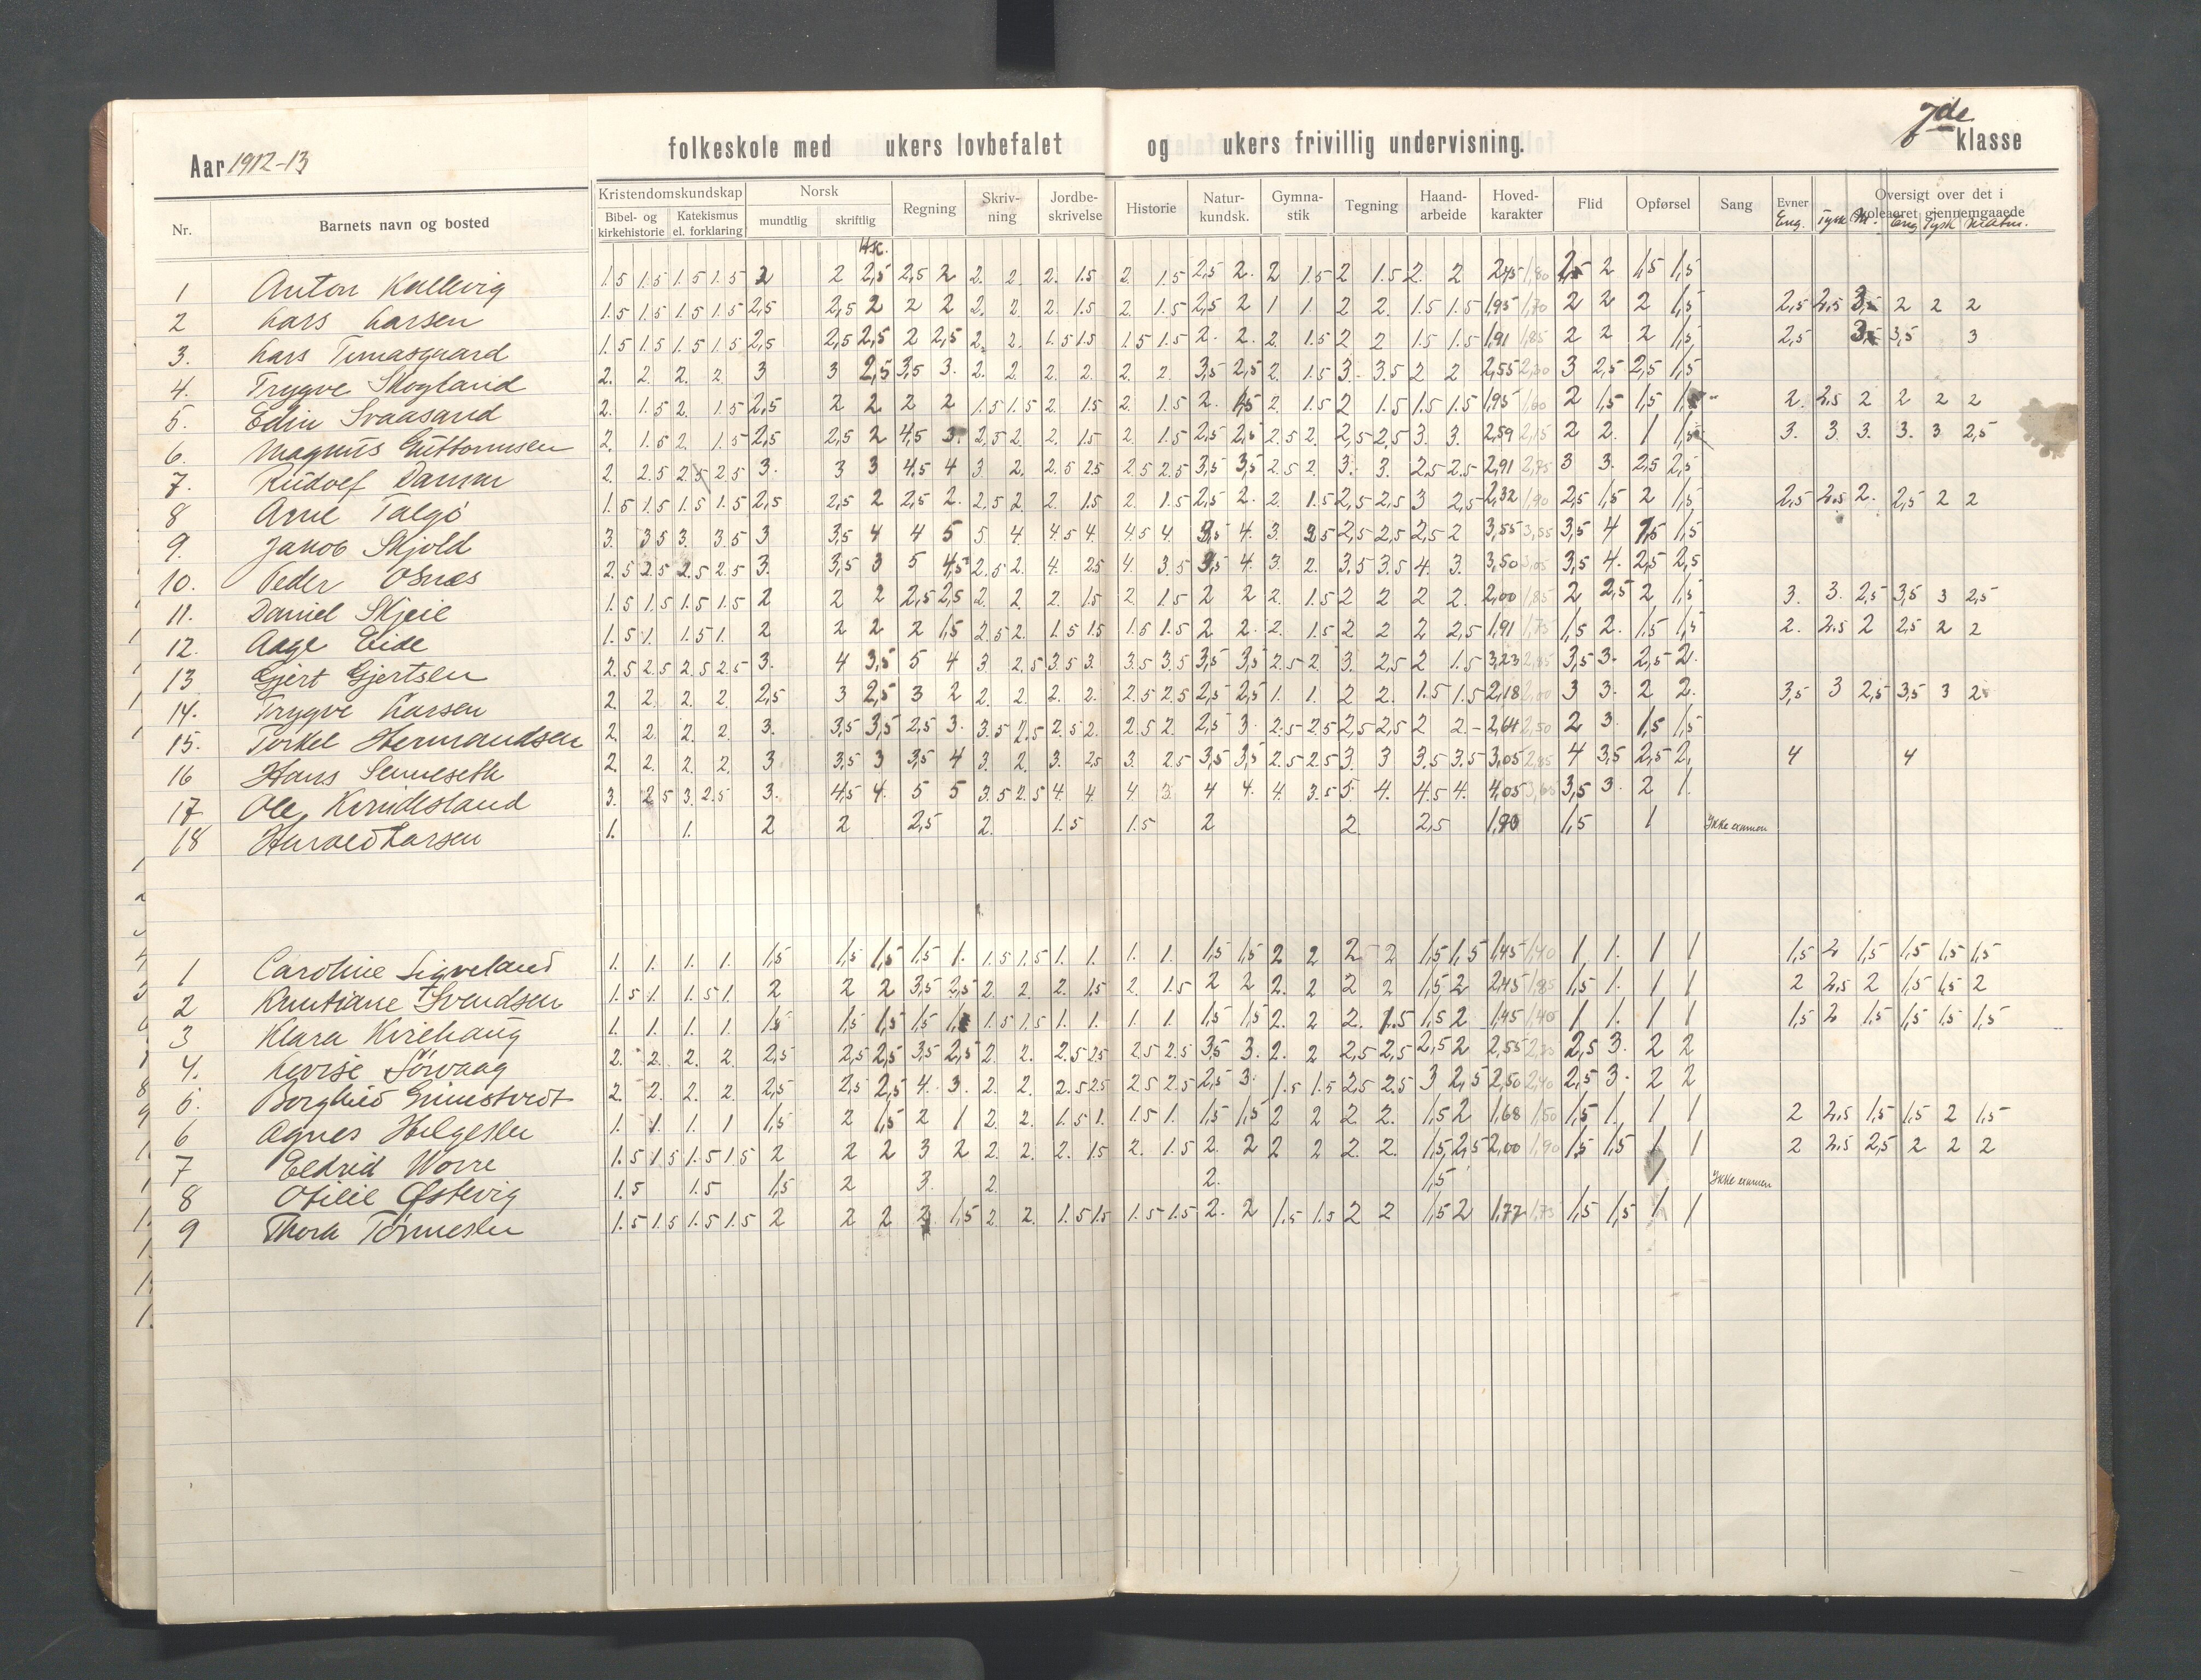 7de
folkeskole med ukers lovbefalet og ukers frivillig undervisning. klasse
Aar 1912-13
Nr. Barnets navn og bosted Kristendomskundskap Norsk Regning Skriv-ning Jordbe-skrivelse Historie Natur-kundsk. Gymna-stik Tegning Haand-arbeide Hoved-karakter Flid Opførsel Sang Evner Oversigt over det i skoleaaret gjennemgaaede
Bibel- og kirkehistorie Katekismus el. forklaring mundtlig skriftlig Eng. Tysk M. Eng Tysk
1 Anton Kallevig 1.5 1.5 1.5 1.5 2 2 2,5 2,5 2 2. 2. 2. 1.5 2. 1.5 2,5 2. 2 1.5 2 1.5 2. 2 1,80 2 1,5 1,5
2 Lars Larsen 1.5 1.5 1.5 1.5 2,5 2,5 2 2 2 2. 2. 2. 1.5 2. 1.5 2,5 2 1 1. 2 2. 1.5 1.5 1,95 1,70 2 2 2 1,5 2,5 2,5 2 2 2
3. Lars Timasgaard 1.5 1.5 1.5 1.5 2,5 2,5 2,5 2 2,5 2. 2. 1.5 1.5 1.5 1.5 2. 2. 2. 1.5 2 2 1.5 1.5 1,91 1,85 2 2 2 1,5 2,5 3,5 3
4. Trygve Skogland 2. 2. 2. 2. 3 3 2,5 3,5 3. 2. 2. 2. 2. 2. 2. 3,5 2,5 2. 1.5 3. 3.5 2 2 2,55 3 2,5 2,5 1,5
5. Edin Svaasand 2. 1.5 2. 1.5 2,5 2 2 2 2 1.5 1.5 2. 1.5 2. 1.5 2. 1,5 2. 1.5 2 1.5 1.5 1.5 1,95 2 1,5 1,5 2. 2.5 2 2 2 2
6. Magnus Guttormsen 2. 1.5 2. 1.5 2,5 2,5 2 4,5 3. 2,5 2. 2. 1.5 2. 1.5 2,5 2,5 2.5 2. 2,5 2,5 3. 3. 2,59 2,15 2 2. 1 3. 3. 3. 3. 3 2,5
7. Rudolf Danian 2. 2.5 2.5 2.5 3. 3 3 4,5 4 3 2. 2.5 2.5 2.5 2.5 3,5 3,5 2.5 2. 3. 3. 2.5 2.5 2,91 2,75 3 3. 2,5 2,5
8 Arne Talgö 1.5 1.5 1.5 1.5 2,5 2,5 2 2,5 2. 2.5 2. 2. 1.5 2. 1.5 2,5 2. 2. 1.5 2,5 2,5 3 2,5 2,32 1,90 2,5 1,5 2 1,5 2,5 2.5 2. 2,5 2 2
9. Jakob Skjold 3. 3.5 3. 3.5 3 3,5 4 4 5 5. 4. 4.5 4. 4.5 4. 4. 3. 2,5 2,5 2,5 2 3,55 3,55 3,5 4 1,5
10. Peder Osnes 2.5 2.5 2.5 2.5 3. 3,5 3 5 4,5 2.5 2. 4. 2.5 4. 3.5 4. 3. 2. 3.5 3.5 4. 3. 3,50 3,5 4. 2,5 2,5
11. Daniel Skjeie 1.5 1.5 1.5 1.5 2 2 2 2,5 2,5 2. 2. 2. 1.5 2. 1.5 2 2 2. 1.5 2 2 2 2. 2,00 1,85 2 2,5 2 1,5 3. 3. 2,5 3,5 3 2,5
12. Aage Eide 1.5 1. 1.5 1. 2 2 2 2 1,5 2.5 2. 1.5 1.5 1.5 1.5 2 2. 2. 1.5 2 2 2 2,5 1,91 1,75 1,5 2. 1.5 1,5 2. 2.5 2 2,5 2 2
13 Gjert Gjertsen 2.5 2.5 2.5 2.5 3. 4 3,5 5 4 3 2.5 3.5 3. 3.5 3.5 3,5 3,5 2.5 2. 3. 2,5 2 1.5 3,23 2,85 3,5 3. 2,5 2.
14. Trygve Larsen 2. 2. 2. 2. 2,5 3 2,5 3 2 2. 2. 2. 2. 2.5 2.5 2,5 2,5 1. 1. 2 2. 1.5 1.5 2,18 2,00 3 3. 2 2. 3,5 3 2,5 3,5 3 2
15. Torkel Hermandsen 2. 2. 2. 2. 3. 3,5 3,5 2,5 3. 3.5 2.5 2.5 2. 2.5 2. 2,5 3. 2.5 2.5 2,5 2,5 2 2. 2,64 2,50 2 3. 1,5 1,5
16 Hans Semeseth 2. 2. 2. 2. 3 3,5 3 3,5 4 3. 2. 3. 2.5 3. 2.5 3,5 3,5 2.5 2.5 3 3 3.5 3.5 3,05 2,85 4 3,5 2,5 2. 4 4
17 Ole Kvindesland 3. 2.5 3. 2.5 3. 4,5 4. 5 5 3.5 2.5 4. 4. 4. 3. 4 4. 4. 3.5 5. 4. 4.5 4. 4,05 3,65 3,5 3. 2 1.
18 Harald Larsen 1. 1. 2 2 2,5 2. 1.5 1.5 2 2. 2,5 1,90 1,5 1 Ikke examen
1 Caroline Sigveland 1. 1. 1. 1. 1,5 1,5 1,5 1,5 1. 1.5 1.5 1. 1. 1. 1. 1,5 1,5 2 2 2 2 1,5 1,5 1,45 1,40 1 1. 1 1 1,5 2 1,5 1,5 1,5 1,5
2 Kristiane Svendsen 1.5 1. 1.5 1. 2 2 2 3,5 2,5 2. 2. 2. 1,5 2. 1.5 2 2 2. 2 2 2 1,5 2 1,85 1,5 1. 1 1 2 2,5 2 1,5 1,5 2
3 Klara Kvehaug 1. 1. 1. 1. 1,5 1,5 1,5 1,5 1.5 1.5 1. 1. 1. 1. 1,5 1,5 2. 2 2. 1.5 1,5 2 1,45 1,40 1 1. 1 1 1,5 2 1,5 1,5 1,5 1,5
4. Lovise Sörvaag 2. 2. 2. 2. 2,5 2,5 2,5 3,5 2,5 2. 2. 2.5 2.5 2.5 2.5 3,5 3. 2. 2 2,5 2,5 2,5 2 2,55 2,5 3. 2 2
5. Borghild Grimstvedt 2. 2. 2. 2. 2,5 2,5 2,5 4. 3. 2. 2. 2.5 2.5 2.5 2.5 2,5 3. 1.5 1.5 2,5 2,5 3 2,5 2,50 2,40 2,5 3. 2 2
6 Agnes Helgesen 1. 1. 1. 1 1,5 2 1,5 2 1 2. 2. 1.5 1. 1.5 1. 1,5 1,5 2 2 2 2. 1,5 2 1,68 1,50 1,5 1. 1 1 2 2,5 1,5 1,5 2 1,5
7 Eldrid Worre 1.5 1.5 1.5 1.5 2 2 2 3 2 2. 2. 2. 1.5 2. 1.5 2. 2 2 2 2. 2. 1,5 2,5 2,00 1,90 1,5 1,5 1 1 2 2,5 2,5 2 2 2
8 Otilie Østevig 1.5 1.5 1,5 2 3. 2. 2. 1,5 1 Ikke examen
9 Thora Tönnesen 1.5 1.5 1.5 1.5 2 2 2 2. 1,5 2. 2. 1.5 1.5 1.5 1.5 2. 2 1.5 1.5 2 2 1,5 2 1,77 1,75 1,5 1,5 1 1